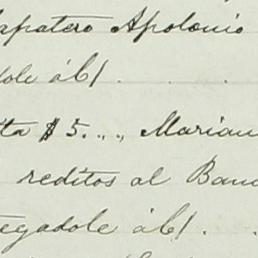 apatero Apolonio
dole ábl . . .
ta $5..., Marian
reditos al Banc
egadole ábl . .